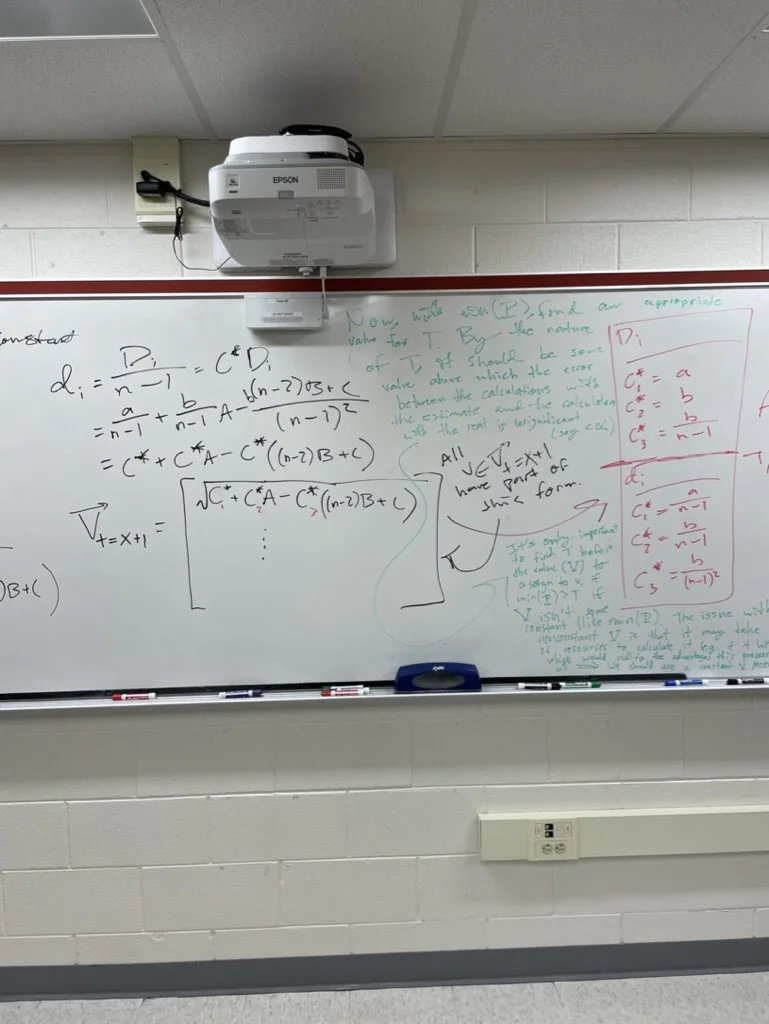 EPSON
onstant
d_i = D_i/(n-1) = C* D_i
= a/(n-1) + b/(n-1) A - b((n-2)B+C)/(n-1)²
= C* + C*A - C*((n-2)B+C)
V_{t=x+1} = [√(C₁* + C₂*A - C₃*((n-2)B+C))
⋮ ]
)B+C)
Now, with min(P), find an appropriate
value for T. By the nature
of T, it should be some
value above which the error
between the calculations with
the estimate and the calculation
with the real is insignificant
(say, <α)
All
v∈V_{t=x+1}
have part of
this form.
It's only important
to find T before
the value (V) to
assign to v_i if
min(P)>T if
V isn't some
constant (like min(P)). The issue with
nonconstant V is that it may take
of resources to calculate it (eg. if it w
which would nullify the advantages this
so ⟹ we should use a constant V.
D_i
C₁* = a
C₂* = b
C₃* = b/(n-1)
d_i
C₁* = a/(n-1)
C₂* = b/(n-1)
C₃* = b/(n-1)²